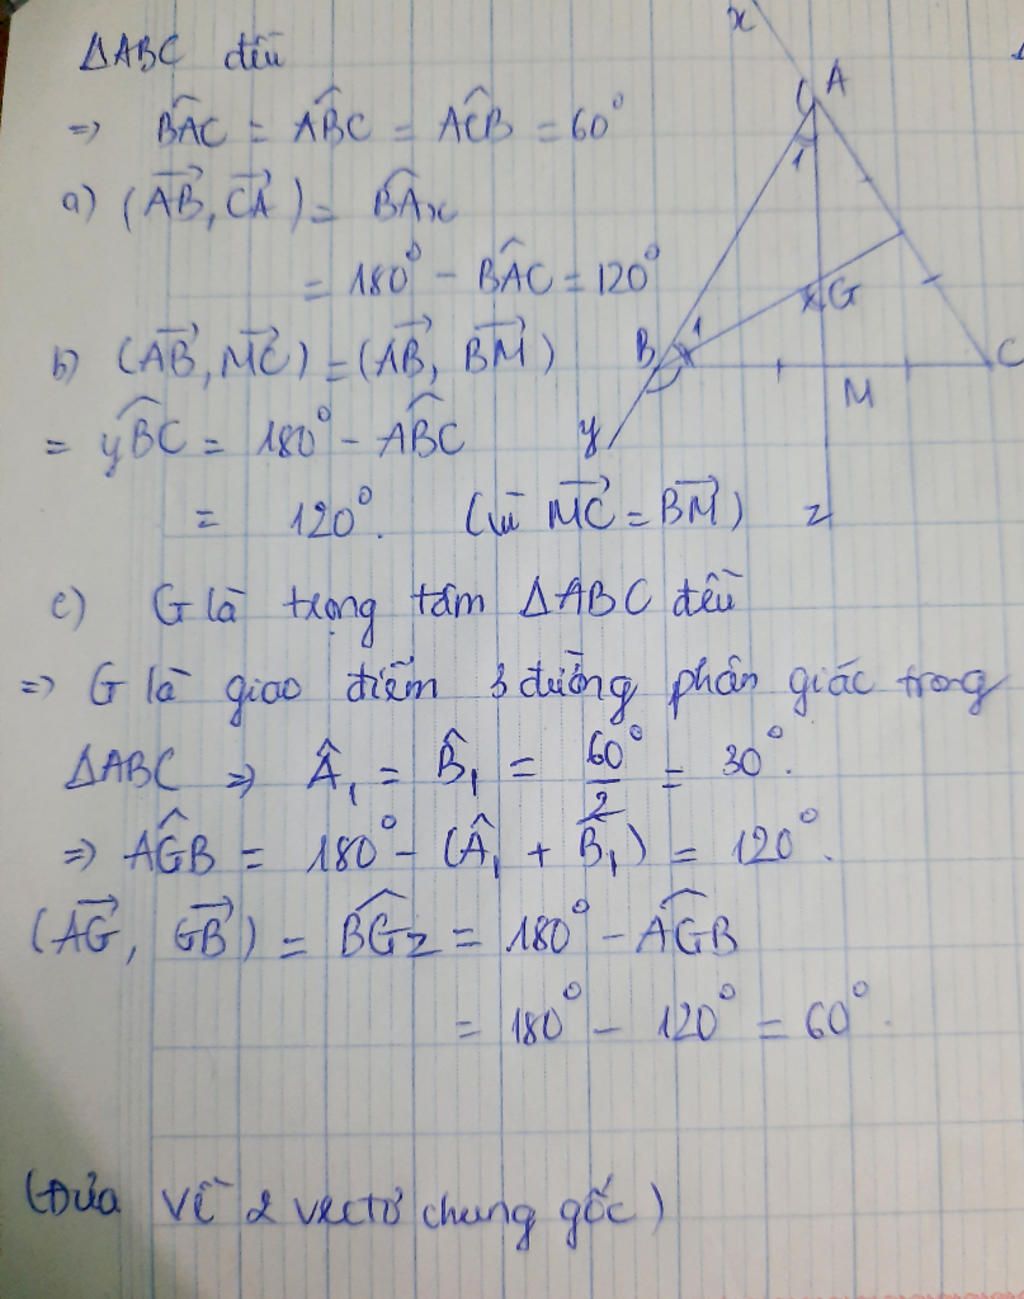 ΔABC đều
⇒ BÂC = ABC = ACB = 60°
a) (AB, CA) = BAx
= 180° - BAC = 120°
b) (AB, MC) = (AB, BM)
= yBC = 180° - ABC
= 120°. (vì MC = BM)
c) G là trọng tâm ΔABC đều
⇒ G là giao điểm 3 đường phân giác trong
ΔABC ⇒ Â₁ = B̂₁ = 60°/2 = 30°.
⇒ AGB = 180° - (Â₁ + B̂₁) = 120°.
(AG, GB) = BGz = 180° - AGB
= 180° - 120° = 60°.
(Đưa về 2 vectơ chung gốc)
x
A
1
G
B
1
C
M
y
z